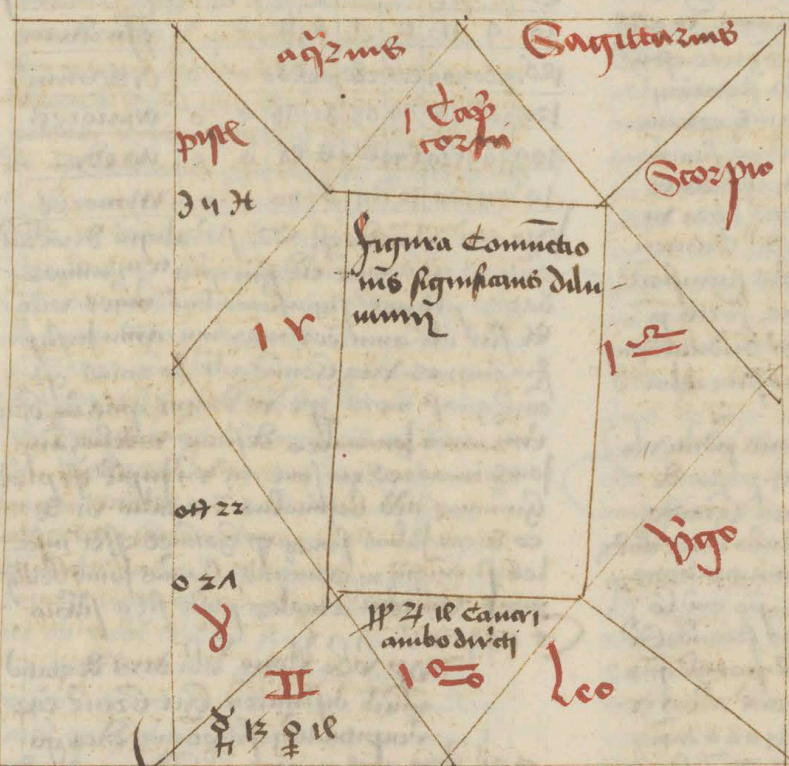 aq̃rius
Sagittarius
1 Cap̃
corn
pisc
Scorpio
figura Coniu̅ctio
nis significans dilu
vium
1 ♈
1 ♎
Virgo
♉
♃ 18 Cancri
ambo dir̃cti
1 ♋
Leo
♊
13 ♀ 18